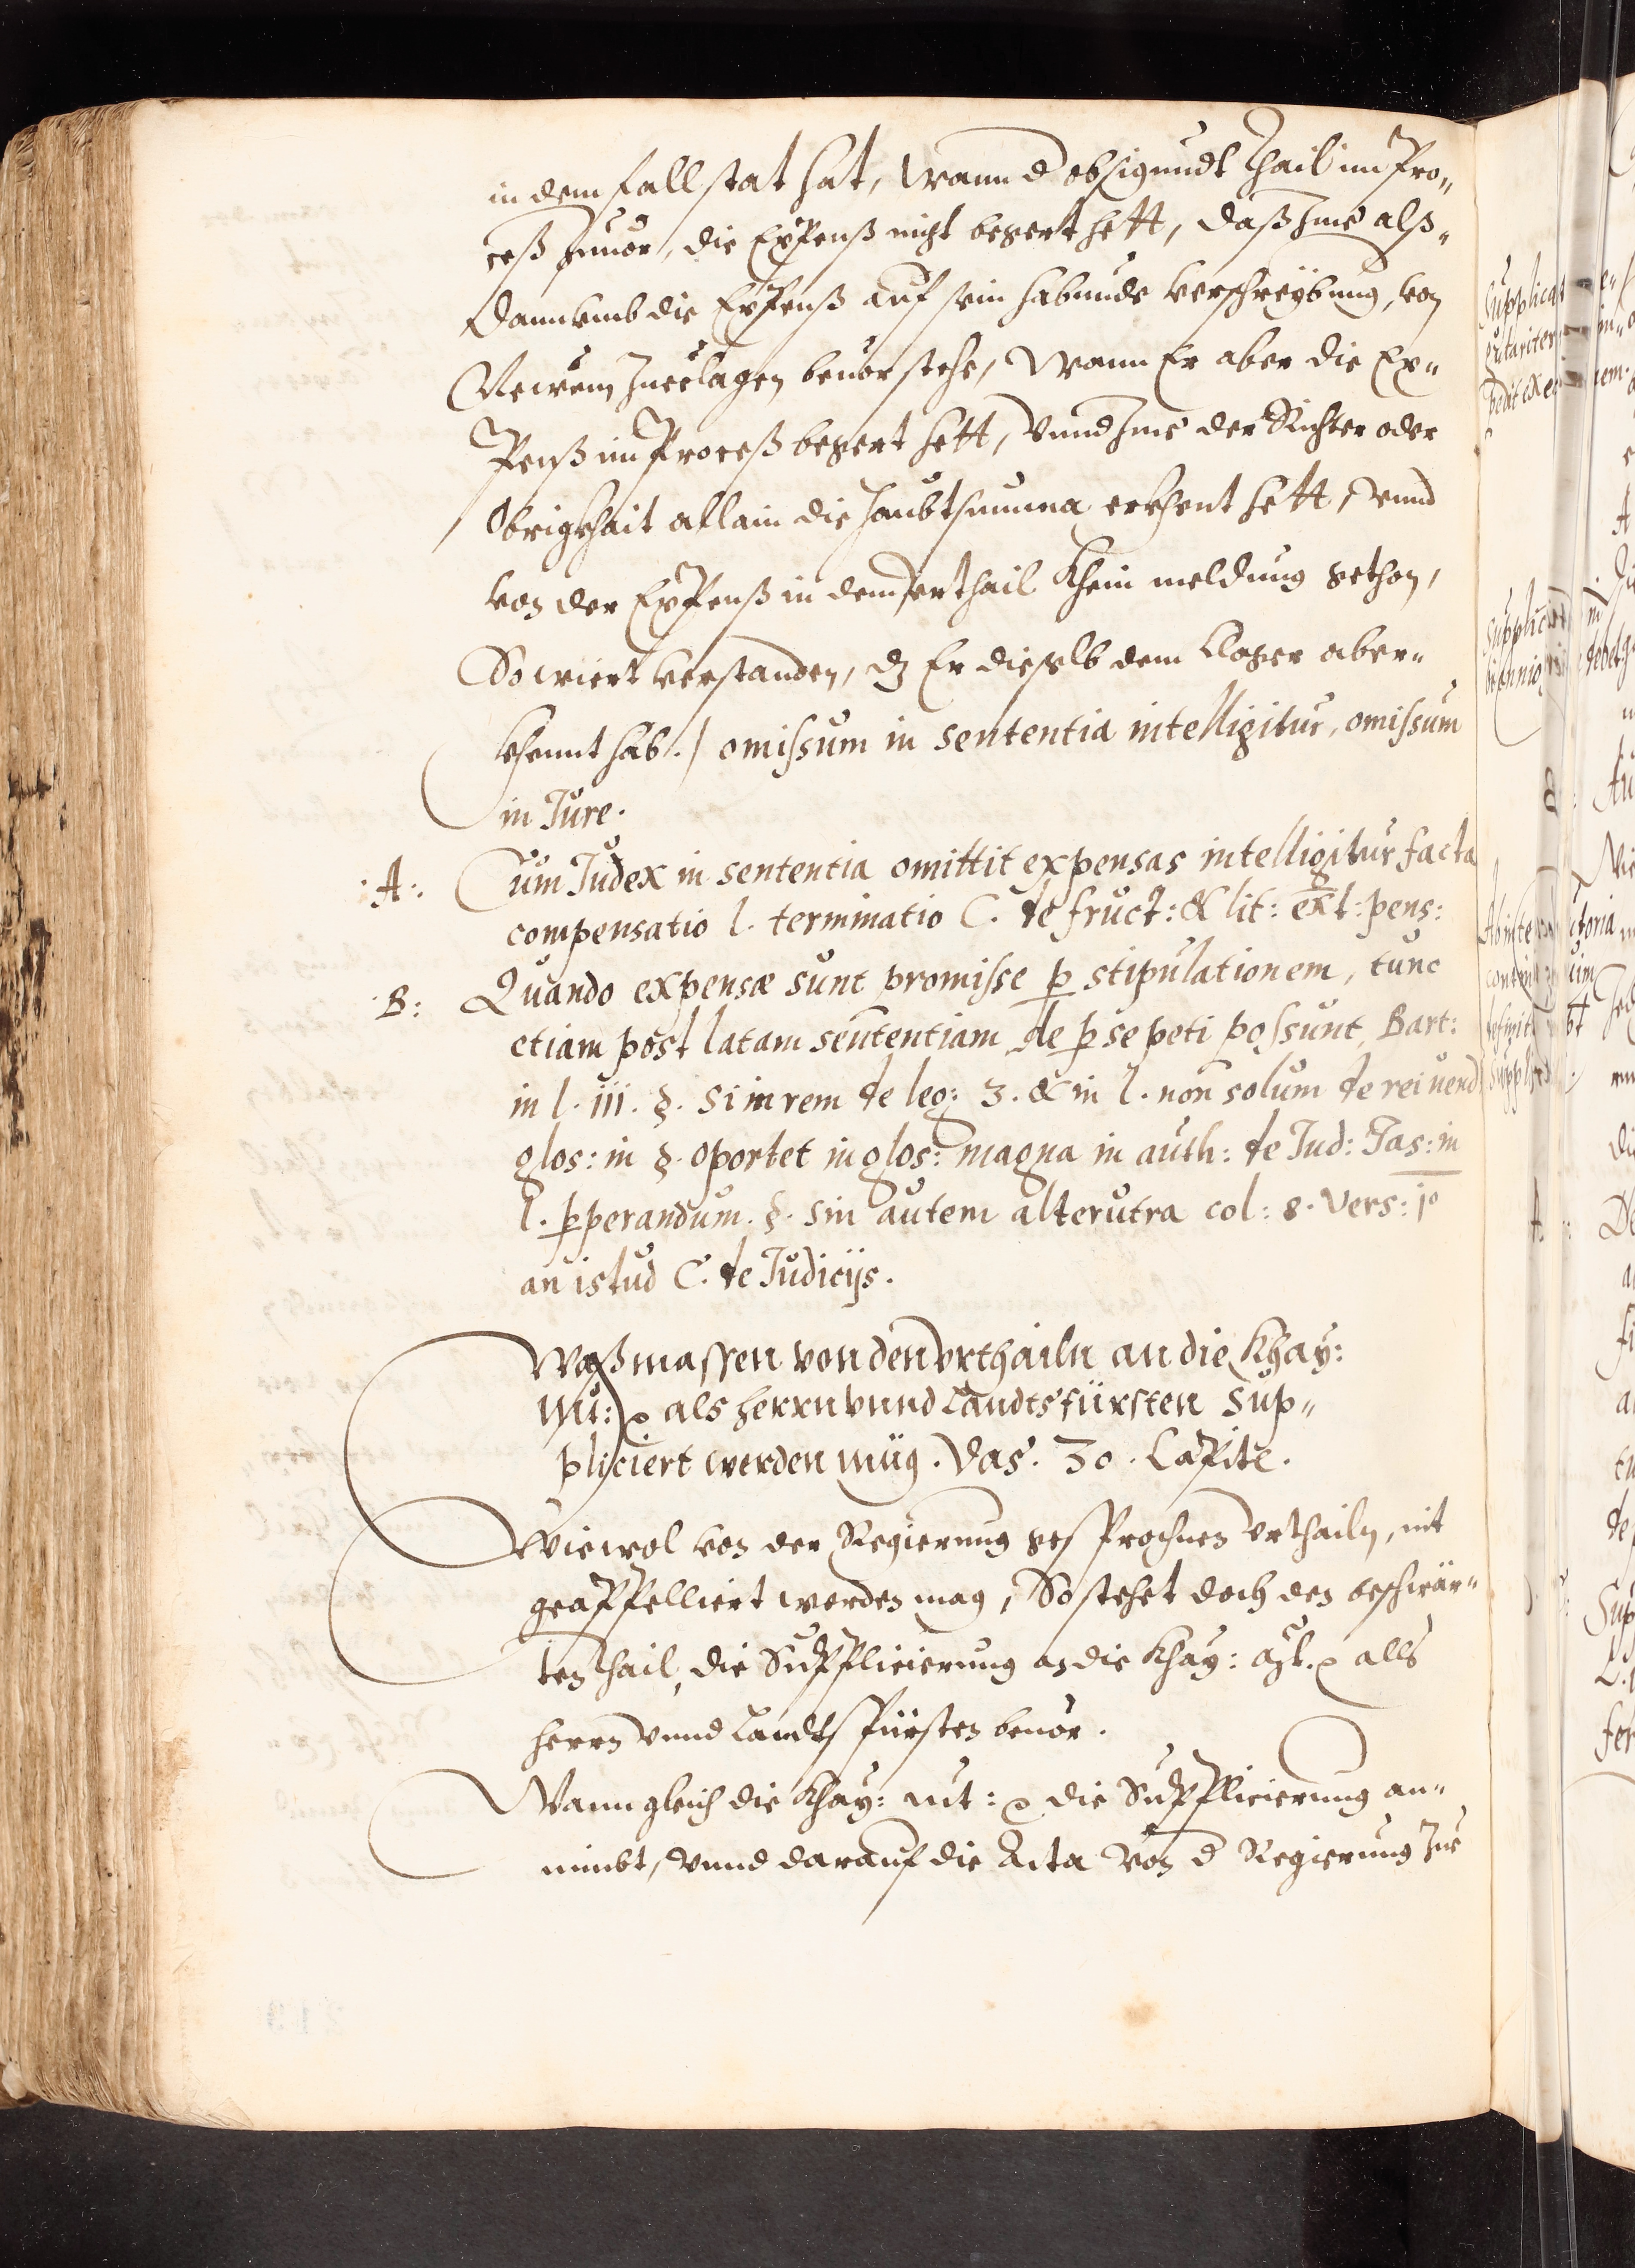 in dem fall stat hat, Wann d obsigundt Thail im Pro„
ceß zuuor, die Expenß nicht begert hett, daß Ime alß„
dann vmb die Expenß auf sein habunde verschreybung, von
Newem Zueclagen beuorstehe, Wann Er aber die Ex„
Penß im Proceß begert hett, Vnnd Ime der Richter oder
Obrigkhait allain die Haubtsumma erkhent hett, Vnnd
von der Expenß in dem vrthail Khein meldung gethon,
So wiert verstanden, dz Er dieselb dem Clager aber„
khennt hab. / omissum in sententia intelligitur, omissum
in Jure.
:A:. Cum Judex in sententia omittit expensas intelligitur facta
compensatio l. terminatio C. de fruct: & lit: ext: pens:
:B: Quando expensæ sunt promisse p stipulationem, tunc
etiam post latam sententiam de p se peti possunt, Bart:
in l. iii. §. si in rem de leg: 3. & in l. non solum de rei uend
glos: in §. oportet in glos: magna in auth: de Jud: Jas: in
l. pperandum. §. sin autem alterutra col: 8. Vers: jo
an istud C. de Judicijs.
Waßmassen von den Vrthailn an die Khay:
Mt: als herrn vnnd Landtsfürsten Sup„
pliciert werden müg. Das. 30. Capite.
Wiewol von der Regierung gesprochnen Vrthailn, nit
geappelliert werden mag, So stehet doch den beschwär„
ten Thail, die Supplicierung an die Khay: Mt. alls
herrn vnnd Landtsfürsten beuor.
Wann gleich die Khay: Mt: die Supplicierung an„
nimbt, Vnnd darauf die Acta Von d Regierung Zue